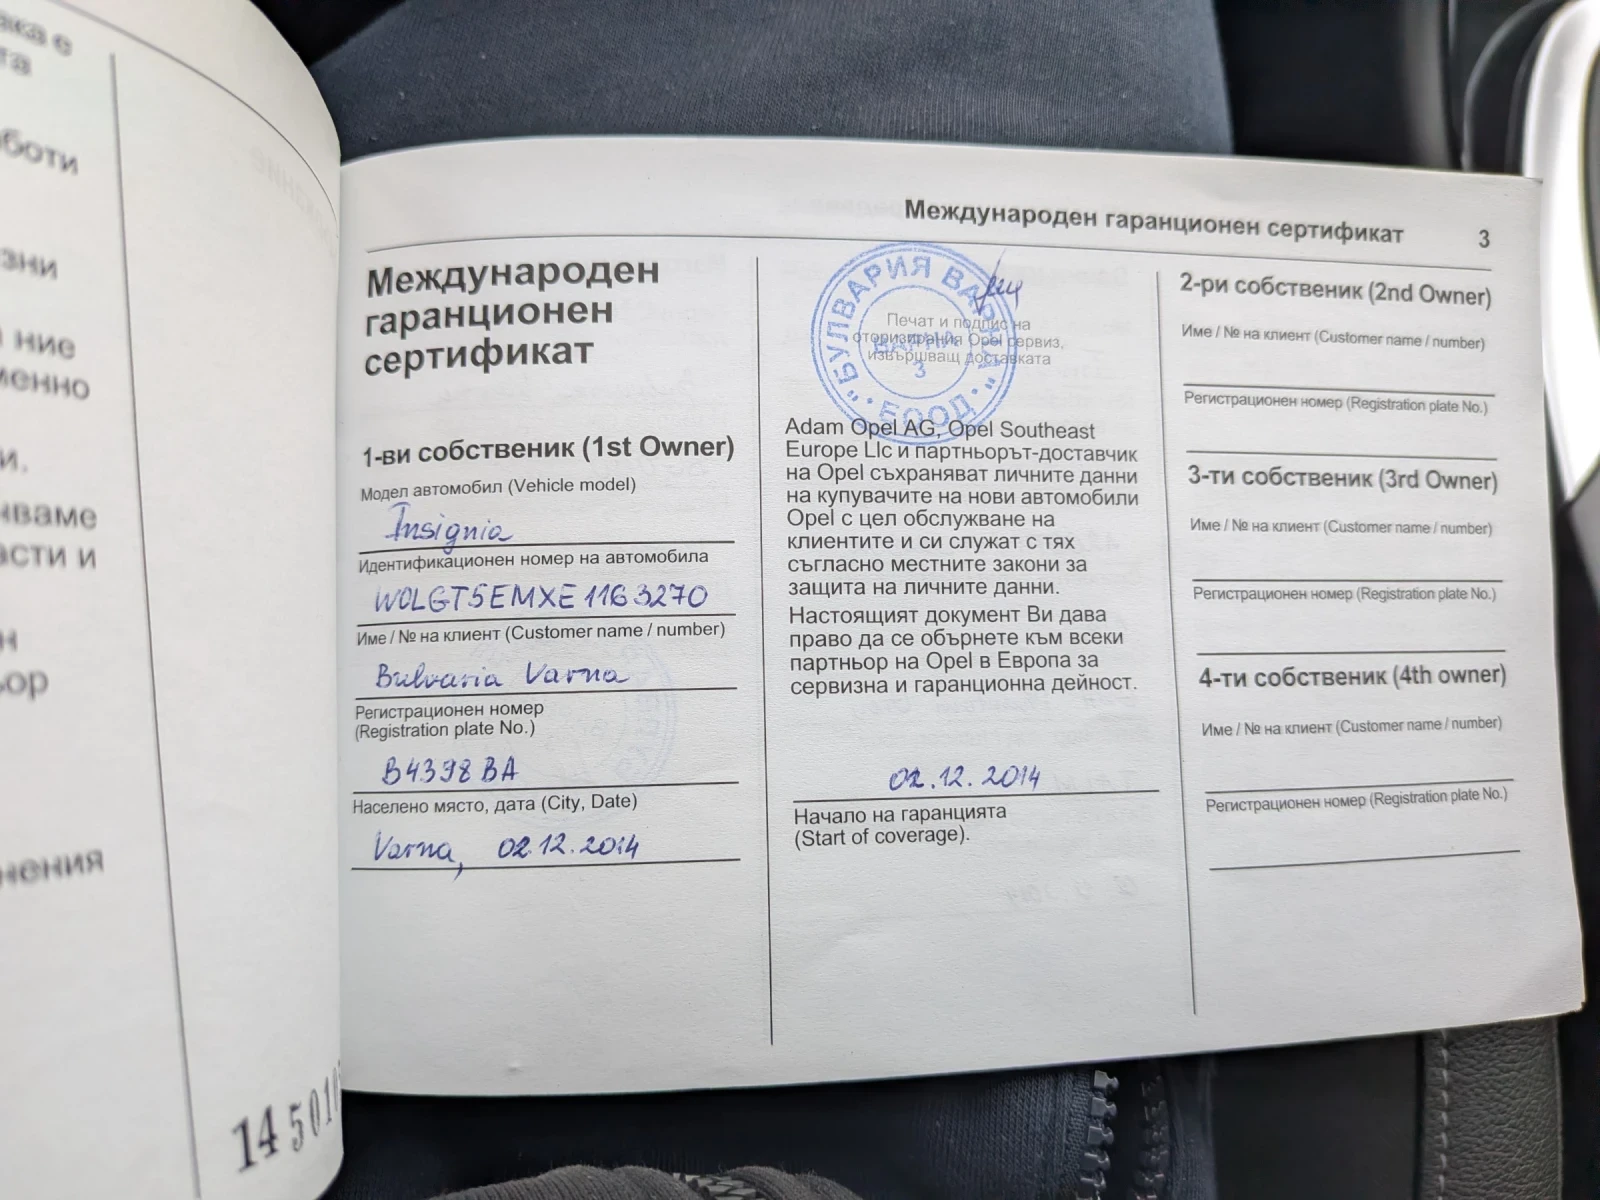 ака е
та
аботи
зни
ние
менно
и.
иваме
асти и
н
ьор
нения
14 501
Международен гаранционен сертификат 3
Международен
гаранционен
сертификат
1-ви собственик (1st Owner)
Модел автомобил (Vehicle model)
Insignia
Идентификационен номер на автомобила
W0LGT5EMXE1163270
Име / № на клиент (Customer name / number)
Bulvaria Varna
Регистрационен номер
(Registration plate No.)
B4398BA
Населено място, дата (City, Date)
Varna, 02.12.2014
"БУЛВАРИЯ ВАРНА" ЕООД
ВАРНА
3
Печат и подпис на
оторизирания Opel сервиз,
извършващ доставката
Adam Opel AG, Opel Southeast
Europe Llc и партньорът-доставчик
на Opel съхраняват личните данни
на купувачите на нови автомобили
Opel с цел обслужване на
клиентите и си служат с тях
съгласно местните закони за
защита на личните данни.
Настоящият документ Ви дава
право да се обърнете към всеки
партньор на Opel в Европа за
сервизна и гаранционна дейност.
02.12.2014
Начало на гаранцията
(Start of coverage).
2-ри собственик (2nd Owner)
Име / № на клиент (Customer name / number)
Регистрационен номер (Registration plate No.)
3-ти собственик (3rd Owner)
Име / № на клиент (Customer name / number)
Регистрационен номер (Registration plate No.)
4-ти собственик (4th owner)
Име / № на клиент (Customer name / number)
Регистрационен номер (Registration plate No.)